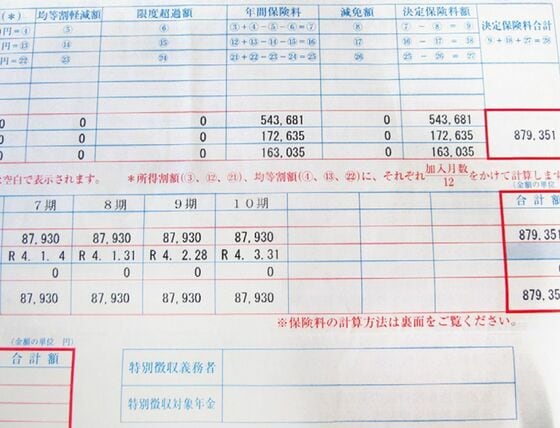 (*) 均等割軽減額 限度超過額 年間保険料 減免額 決定保険料額 決定保険料合計
円=④ ⑤ ⑥ ③+④-⑤-⑥=⑦ ⑧ ⑦-⑧=⑨ ⑨+⑱+㉗=㉘
円=⑬ ⑭ ⑮ ⑫+⑬-⑭-⑮=⑯ ⑰ ⑯-⑰=⑱
円=㉒ ㉓ ㉔ ㉑+㉒-㉓-㉔=㉕ ㉖ ㉕-㉖=㉗
0 0 0 543,681 0 543,681
0 0 0 172,635 0 172,635 879,351
0 0 0 163,035 0 163,035
は空白で表示されます。 *所得割額(③、⑫、㉑)、均等割額(④、⑬、㉒)に、それぞれ加入月数/12をかけて計算しま
(金額の単位
7期 8期 9期 10期 合計額
87,930 87,930 87,930 87,930 879,351
R 4. 1. 4 R 4. 1.31 R 4. 2.28 R 4. 3.31
0 0 0 0
87,930 87,930 87,930 87,930 879,35
※保険料の計算方法は裏面をご覧ください。
(金額の単位 円)
合計額
特別徴収義務者
特別徴収対象年金